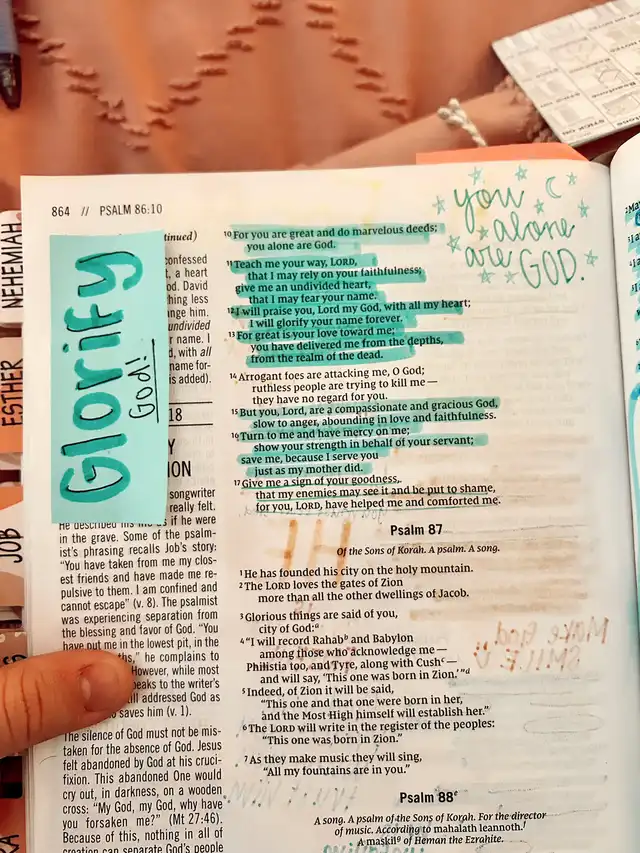 864 // PSALM 86:10
you
alone
are GOD.
NEHEMIAH
ESTHER
JOB
Glorify
God!
tinued)
confessed
, a heart
od. David
hing less
ange him.
undivided
name. I
d, with all
name for-
is added).
18
Y
ION
songwriter
really felt.
He described his as if he were
in the grave. Some of the psalm-
ist's phrasing recalls Job's story:
"You have taken from me my clos-
est friends and have made me re-
pulsive to them. I am confined and
cannot escape" (v. 8). The psalmist
was experiencing separation from
the blessing and favor of God. "You
have put me in the lowest pit, in the
ths," he complains to
However, while most
peaks to the writer's
ill addressed God as
o saves him (v. 1).
The silence of God must not be mis-
taken for the absence of God. Jesus
felt abandoned by God at his cruci-
fixion. This abandoned One would
cry out, in darkness, on a wooden
cross: "My God, my God, why have
you forsaken me?" (Mt 27:46).
Because of this, nothing in all of
creation can separate God's people
10 For you are great and do marvelous deeds;
you alone are God.
11 Teach me your way, LORD,
that I may rely on your faithfulness;
give me an undivided heart,
that I may fear your name.
12 I will praise you, Lord my God, with all my heart;
I will glorify your name forever.
13 For great is your love toward me;
you have delivered me from the depths,
from the realm of the dead.
14 Arrogant foes are attacking me, O God;
ruthless people are trying to kill me —
they have no regard for you.
15 But you, Lord, are a compassionate and gracious God,
slow to anger, abounding in love and faithfulness.
16 Turn to me and have mercy on me;
show your strength in behalf of your servant;
save me, because I serve you
just as my mother did.
17 Give me a sign of your goodness,
that my enemies may see it and be put to shame,
for you, LORD, have helped me and comforted me.
Psalm 87
Of the Sons of Korah. A psalm. A song.
1 He has founded his city on the holy mountain.
2 The LORD loves the gates of Zion
more than all the other dwellings of Jacob.
3 Glorious things are said of you,
city of God:a
4 "I will record Rahab b and Babylon
among those who acknowledge me —
Philistia too, and Tyre, along with Cush c —
and will say, 'This one was born in Zion.'" d
5 Indeed, of Zion it will be said,
"This one and that one were born in her,
and the Most High himself will establish her."
6 The LORD will write in the register of the peoples:
"This one was born in Zion."
7 As they make music they will sing,
"All my fountains are in you."
Psalm 88 e
A song. A psalm of the Sons of Korah. For the director
of music. According to mahalath leannoth. f
A maskil g of Heman the Ezrahite.